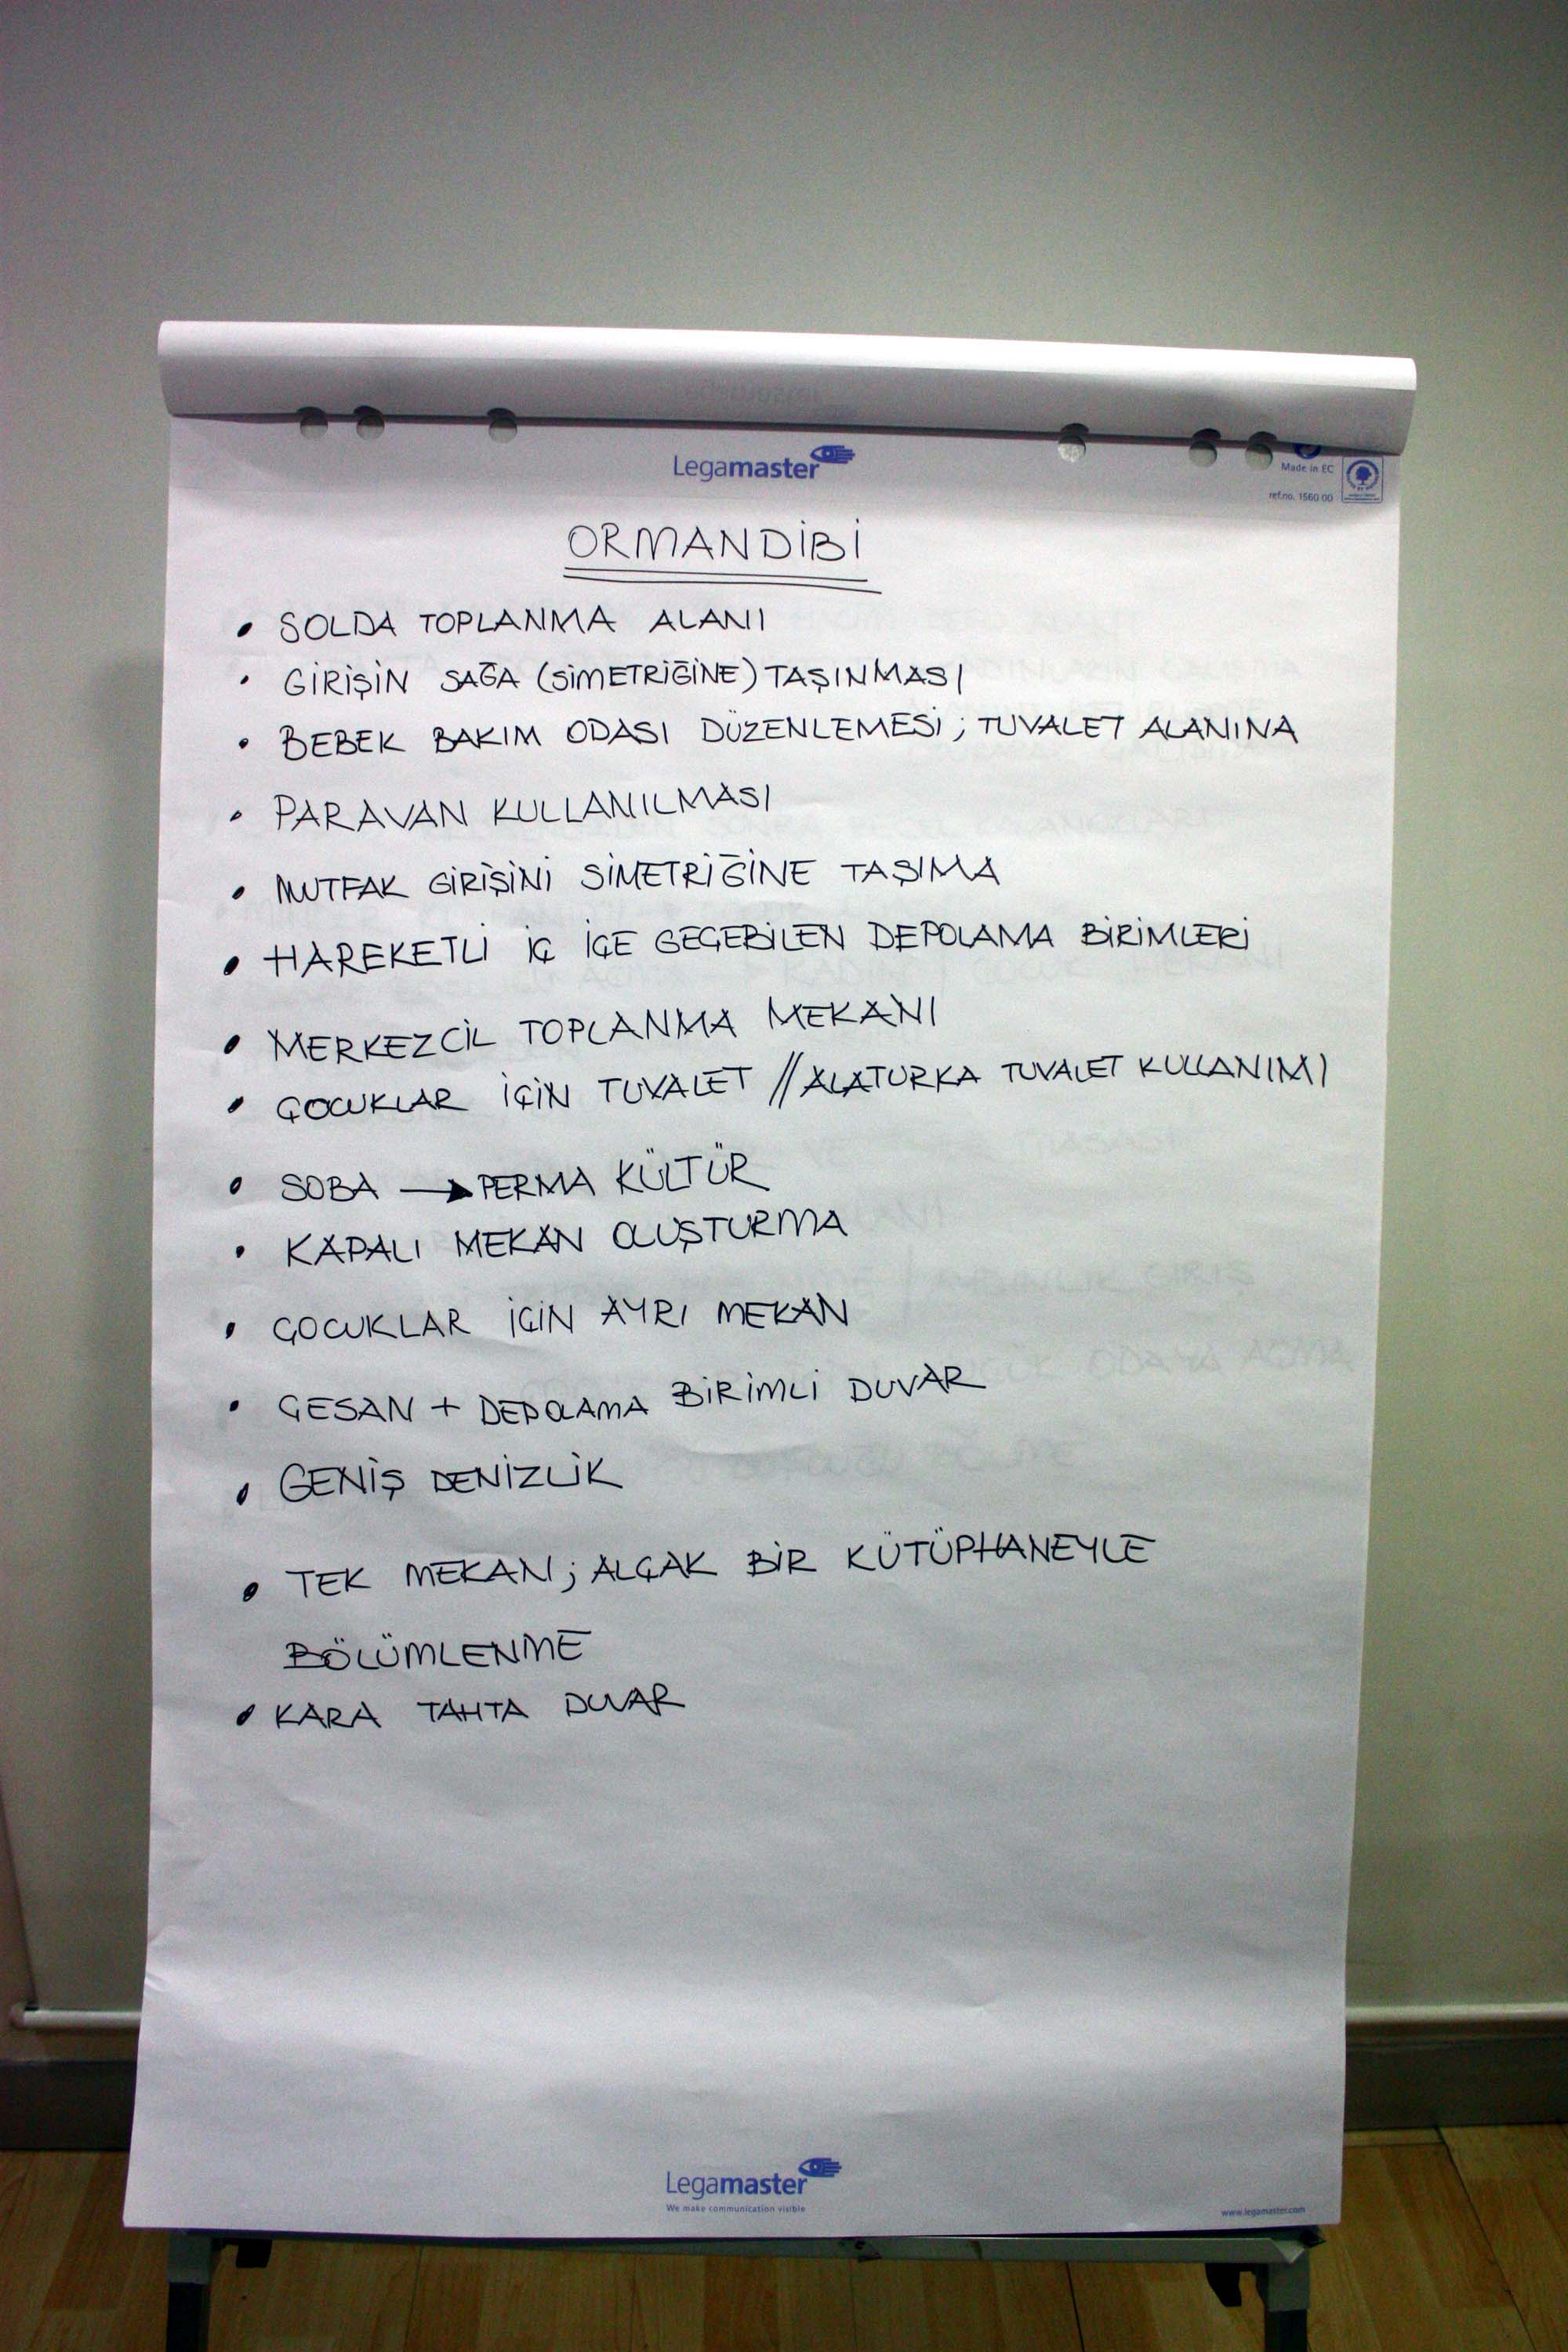 Legamaster
Made in EC
ref.no. 1560 00
ORMANDİBİ
• SOLDA TOPLANMA ALANI
• GİRİŞİN SAĞA (SİMETRİĞİNE) TAŞINMASI
• BEBEK BAKIM ODASI DÜZENLEMESİ; TUVALET ALANINA
• PARAVAN KULLANILMASI
• MUTFAK GİRİŞİNİ SİMETRİĞİNE TAŞIMA
• HAREKETLİ İÇ İÇE GEÇEBİLEN DEPOLAMA BİRİMLERİ
• MERKEZCİL TOPLANMA MEKANI
• ÇOCUKLAR İÇİN TUVALET // ALATURKA TUVALET KULLANIMI
• SOBA → PERMA KÜLTÜR
• KAPALI MEKAN OLUŞTURMA
• ÇOCUKLAR İÇİN AYRI MEKAN
• ÇESAN + DEPOLAMA BİRİMLİ DUVAR
• GENİŞ DENİZLİK
• TEK MEKAN; ALÇAK BİR KÜTÜPHANEYLE
BÖLÜMLENME
• KARA TAHTA DUVAR
Legamaster
We make communication visible
www.legamaster.com